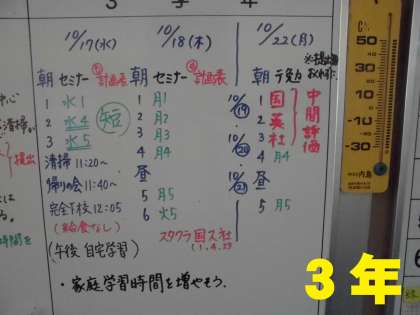 3 学 年
10/17(水)
朝 セミナー 計画表
1 水1 短
2 水4
3 水5
清掃 11:20~
帰りの会 11:40~
完全下校 12:05
(給食なし)
(午後 自宅学習)
10/18(木)
朝 セミナー 計画表
1 月1
2 月2
3 月3
4 月4
昼
5 月5
6 火5
スタクラ 国ス社
10/22(月)
朝 テ勉
10/19 1 国
2 英
10/20 3 社
4 月4
中間評価
10/21 昼
5 月5
・家庭学習時間を増やそう。
清掃
提出
時間を
50
40
30
20
10
0
-10
-20
-30
3年